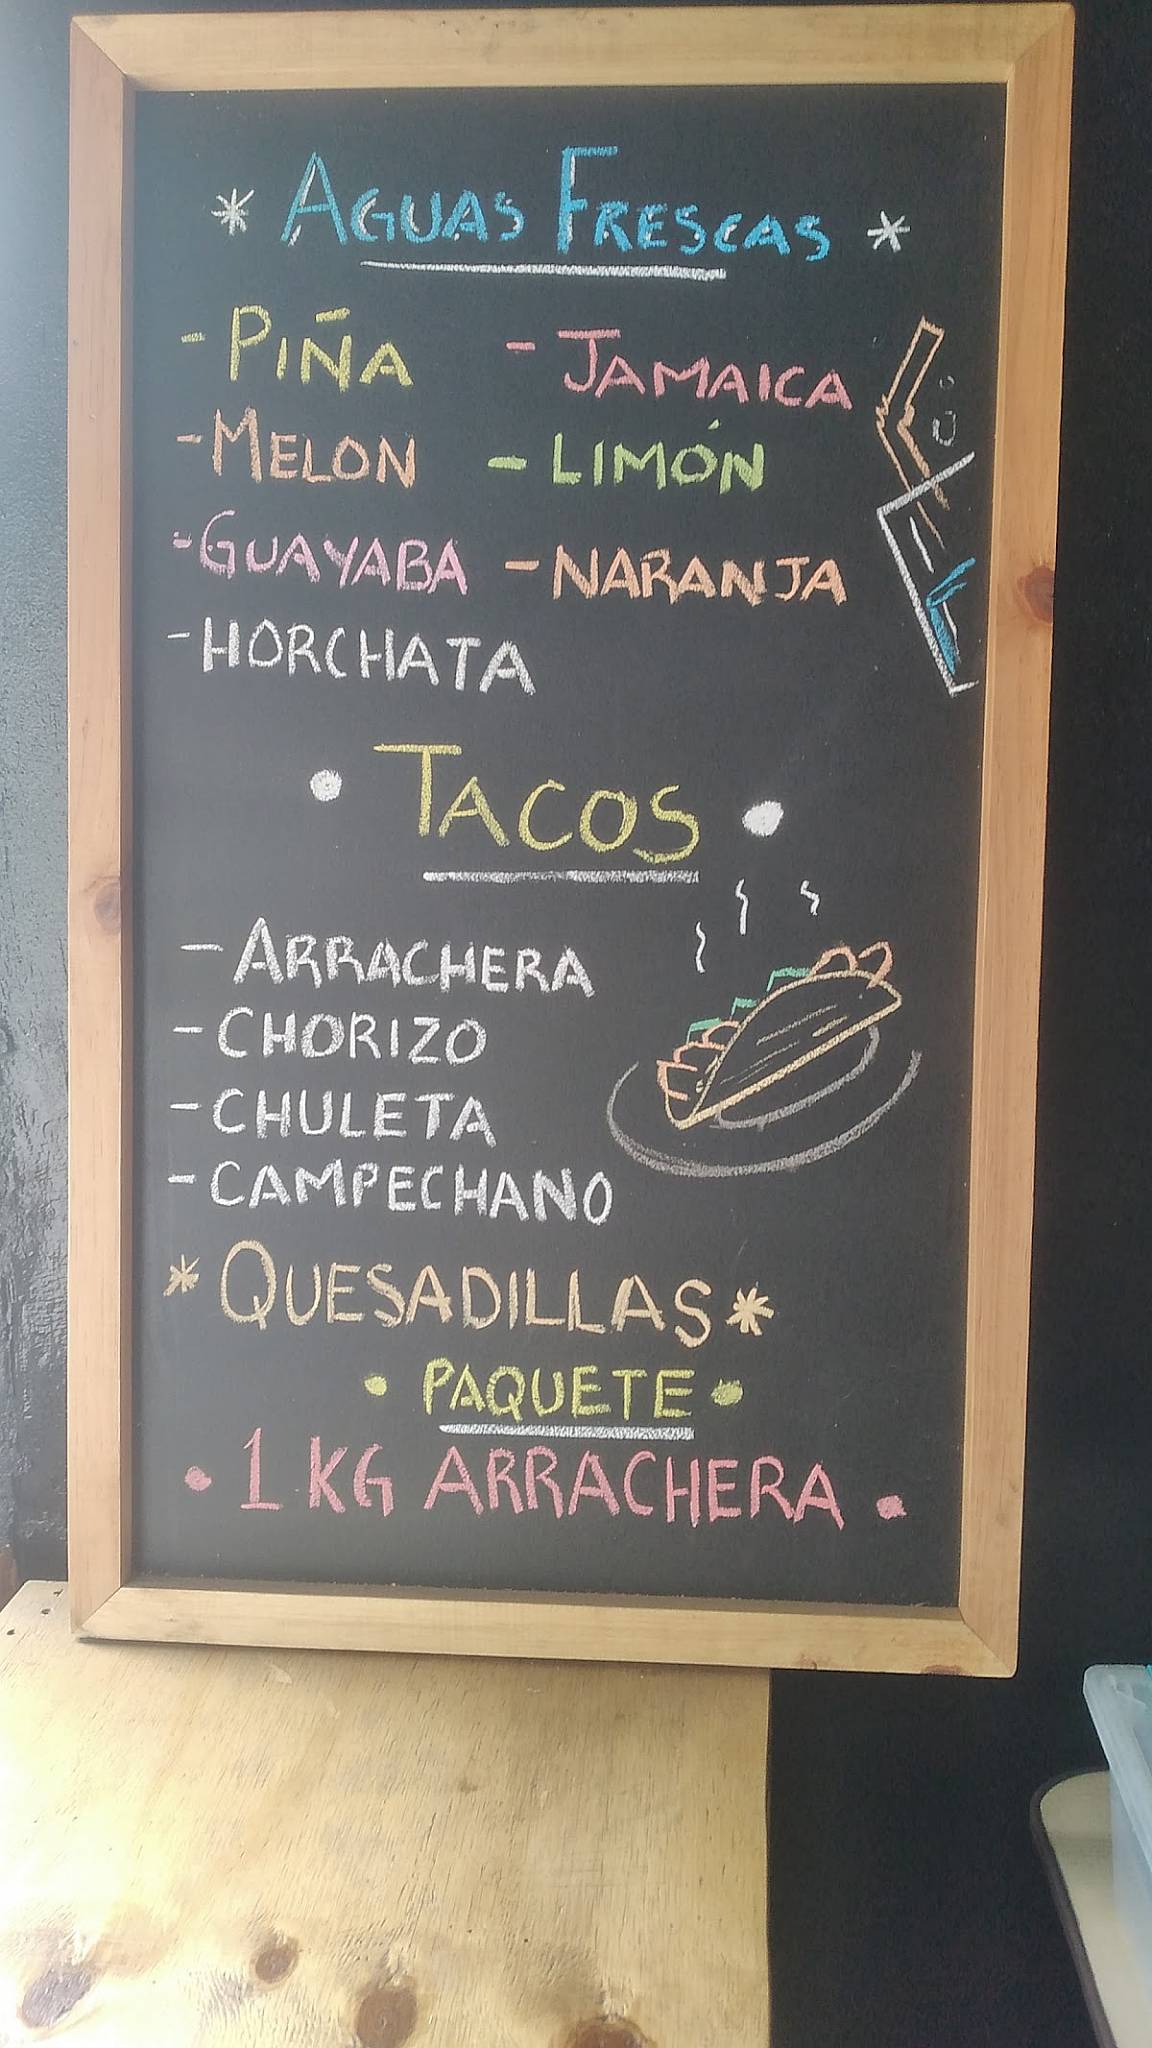 * AGUAS FRESCAS *
- PIÑA - JAMAICA
- MELON - LIMÓN
- GUAYABA - NARANJA
- HORCHATA
• TACOS •
- ARRACHERA
- CHORIZO
- CHULETA
- CAMPECHANO
* QUESADILLAS *
• PAQUETE •
• 1 KG ARRACHERA •